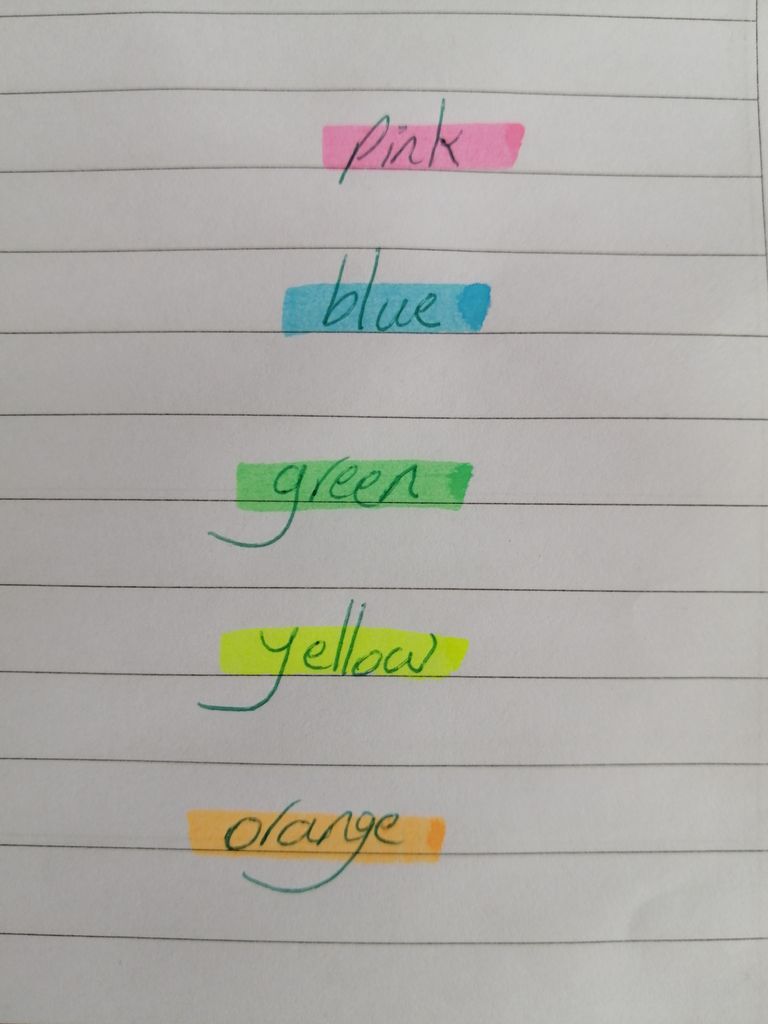 pink
blue
green
yellow
orange